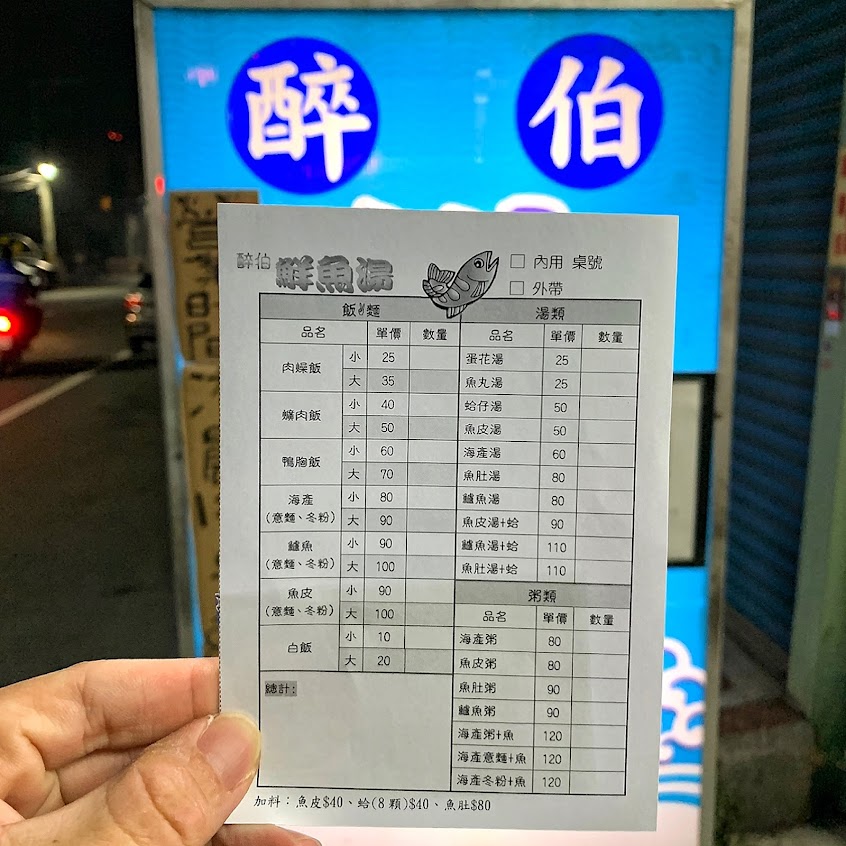 醉伯
醉伯 鮮魚湯
□ 內用 桌號
□ 外帶
飯&麵
品名 單價 數量
肉燥飯 小 25
大 35
爌肉飯 小 40
大 50
鴨胸飯 小 60
大 70
海產(意麵、冬粉) 小 80
大 90
鱸魚(意麵、冬粉) 小 90
大 100
魚皮(意麵、冬粉) 小 90
大 100
白飯 小 10
大 20
總計:
湯類
品名 單價 數量
蛋花湯 25
魚丸湯 25
蛤仔湯 50
魚皮湯 50
海產湯 60
魚肚湯 80
鱸魚湯 80
魚皮湯+蛤 90
鱸魚湯+蛤 110
魚肚湯+蛤 110
粥類
品名 單價 數量
海產粥 80
魚皮粥 80
魚肚粥 90
鱸魚粥 90
海產粥+魚 120
海產意麵+魚 120
海產冬粉+魚 120
加料：魚皮$40、蛤(8顆)$40、魚肚$80